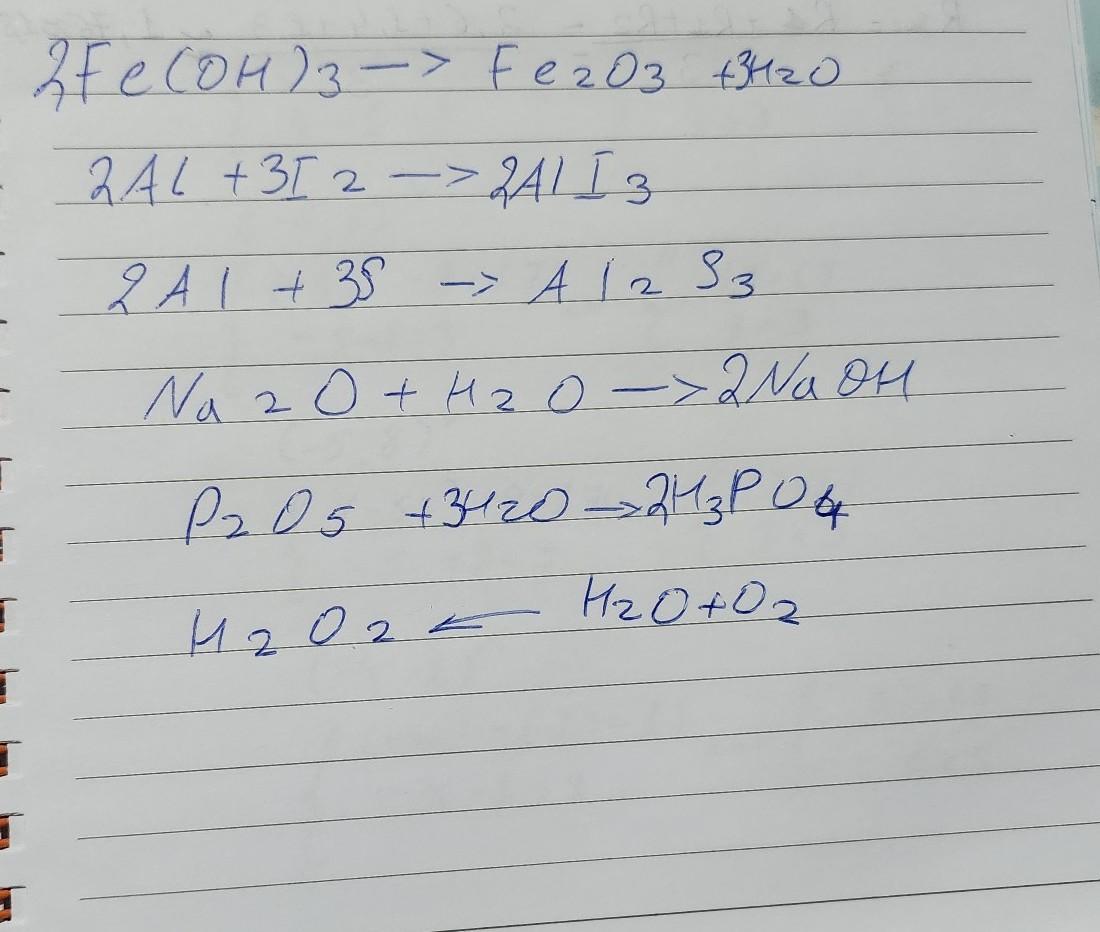 2Fe(OH)3 -> Fe2O3 +3H2O
2Al +3I2 -> 2AlI3
2Al + 3S -> Al2S3
Na2O + H2O -> 2NaOH
P2O5 +3H2O -> 2H3PO4
H2O2 <- H2O+O2